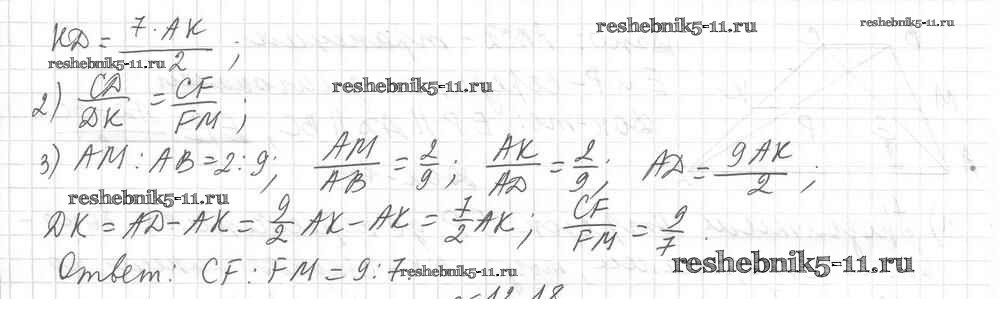 KD = 7·AK / 2 ;
reshebnik5-11.ru
reshebnik5-11.ru
reshebnik5-11.ru
2) CD / DK = CF / FM ;
reshebnik5-11.ru
3) AM : AB = 2 : 9; AM / AB = 2 / 9 ; AK / AD = 2 / 9 ; AD = 9AK / 2 ;
reshebnik5-11.ru
DK = AD - AK = 9/2 AK - AK = 7/2 AK ; CF / FM = 9 / 7 .
Ответ: CF : FM = 9 : 7
reshebnik5-11.ru
reshebnik5-11.ru